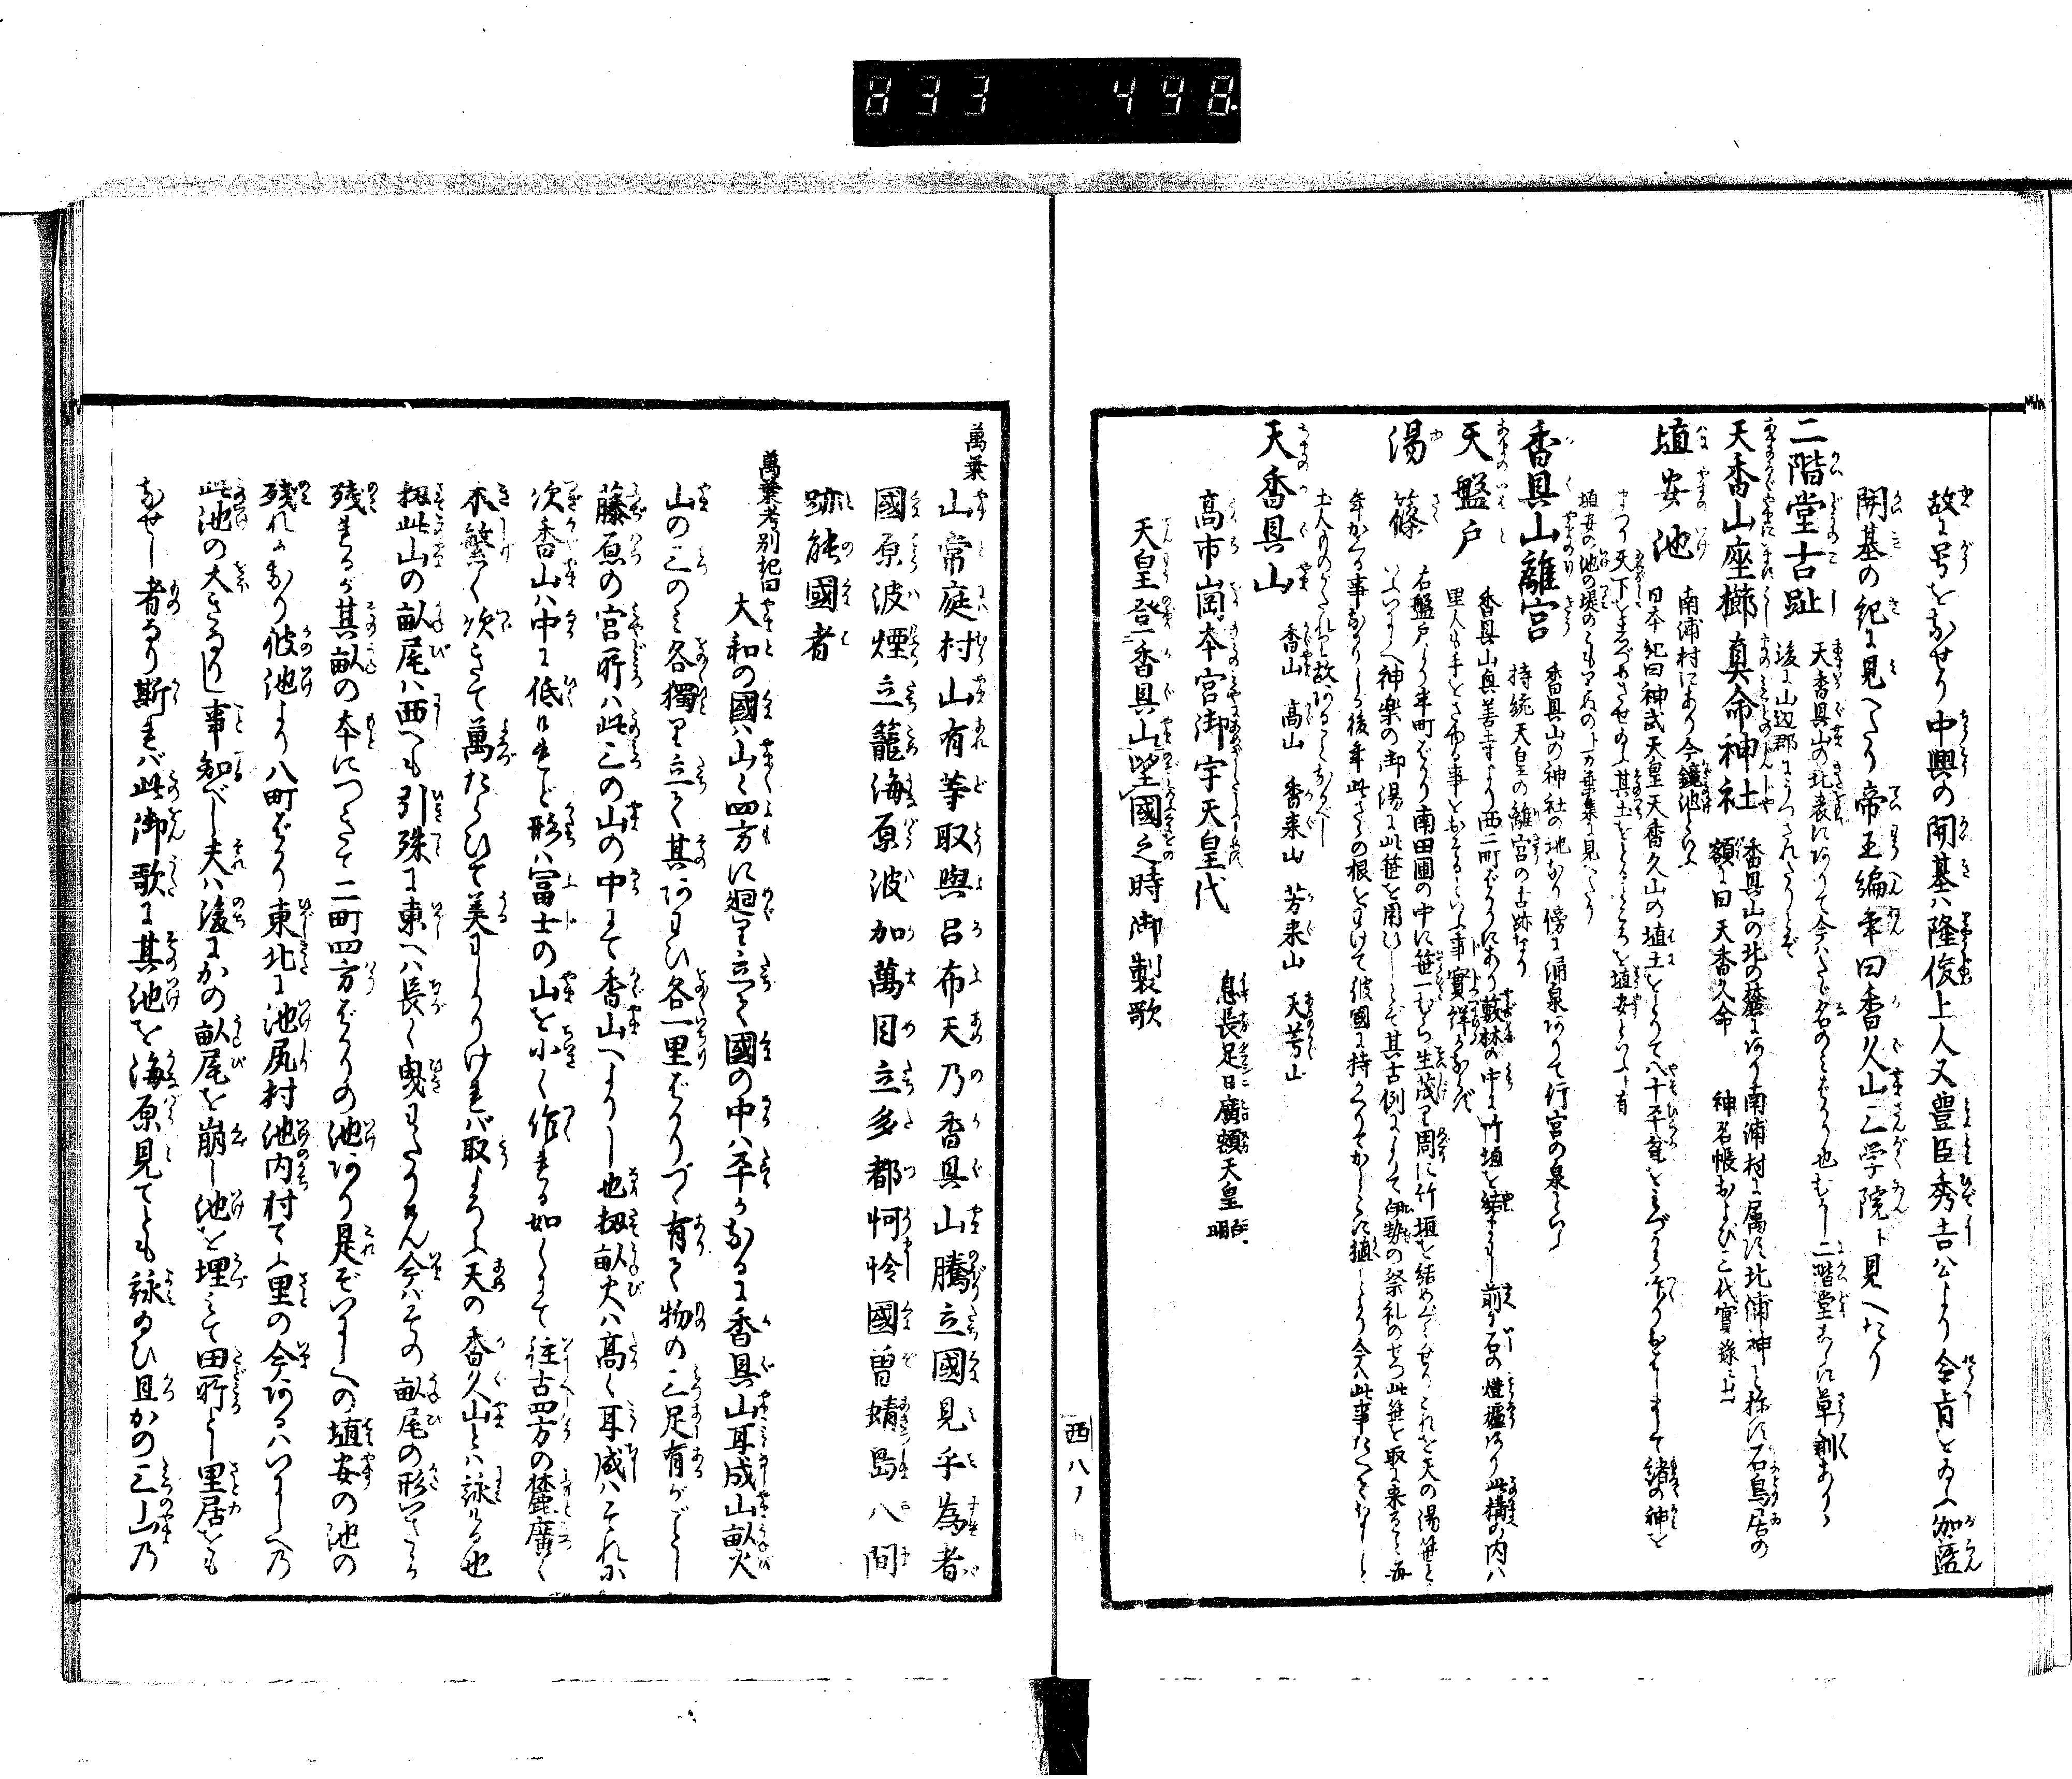 833 498
故に号をなせり中興の開基ハ隆俊上人又豊臣秀吉公より令旨を給ふ伽藍
開基の紀に見へたり帝王編年曰香久山三学院ト見へたり
二階堂古趾
天香具山の北表にありて今ハたゞ名のミばかり也むかし二階堂こゝに草創ありて
後に山辺郡にうつされたりとぞ
天香山座櫛真命神社
香具山の北の麓にあり南浦村に属す北浦神と称す石鳥居の
額に曰天香久命 神名帳および三代實録ニ出
埴安池
南浦村にあり今鏡池といふ
日本紀曰神武天皇天香久山の埴土をとりて八十平瓮をミづから作り
諸の神を
まつり天下をしづめさせ給ふ其土をとるところを埴安といふト有
埴安の池の堤のこもりぬのト万葉集に見へたり
香具山離宮
香具山の神社の地なり傍に涌泉ありて行宮の泉といふ
持統天皇の離宮の古跡なり
天盤戸
香具山真善寺より西二町ばかりにあり藪林の中に竹垣を結まハし前に石の燈爐あり此構の内ハ
里人も手をさゆる事をおそるといふ事實詳ならず
湯篠
右盤戸より半町ばかり南田圃の中に笹一むら生茂り周に竹垣を結めぐらせり これを天の湯笹と
いふいにしへ神楽の御湯に此笹を用ひしとぞ其古例によりて伊勢の祭礼のせつ此笹を取に来ること毎
年かくる事なりしを後年此さゝの根をわけて彼國に持かへりてかしこに植しより今ハ此事たへてなしと
土人ものがたれり故あることなるべし
天香具山
香山 高山 香来山 芳来山 天芳山
高市崗本宮御宇天皇代 息長足日廣額天皇 舒明
天皇登香具山望國之時御製歌
西 八ノ
萬葉
山常庭村山有等取與呂布天乃香具山騰立國見乎為者
國原波煙立籠海原波加萬目立多都怜𪫧國曽蜻島八間
跡能國者
萬葉考別記曰
大和の國ハ山々四方に廻り立て國の中ハ平らなるに香具山耳成山畝火
山の三のミ各獨り立て其あはひ各一里ばかりづゝ有て物の三足有がごとし
藤原の宮所ハ此三の山の中にて香山へよりし也扨畝火ハ高く耳成ハそれに
次香山ハ中に低けれど形ハ冨士の山を小く作れる如くにて往古四方の麓廣く
木繁く次きて萬たらひて美はしかりければ取よろふ天の香久山とハ詠給る也
扨此山の畝尾ハ西へも引殊に東へハ長く曳わたりけん今ハその畝尾の形いさゝか
残れるが其畝の本につきて二町四方ばかりの池あり是ぞいにしへの埴安の池の
残れるなり彼池より八町ばかり東北に池尻村池内村てふ里の今あるハいにしへ乃
此池の大きなりし事知べし夫ハ後にかの畝尾を崩し池を埋ミて田所とし里居をも
なせし者なり斯れバ此御歌に其池を海原見てとも詠給ひ且かの三山乃